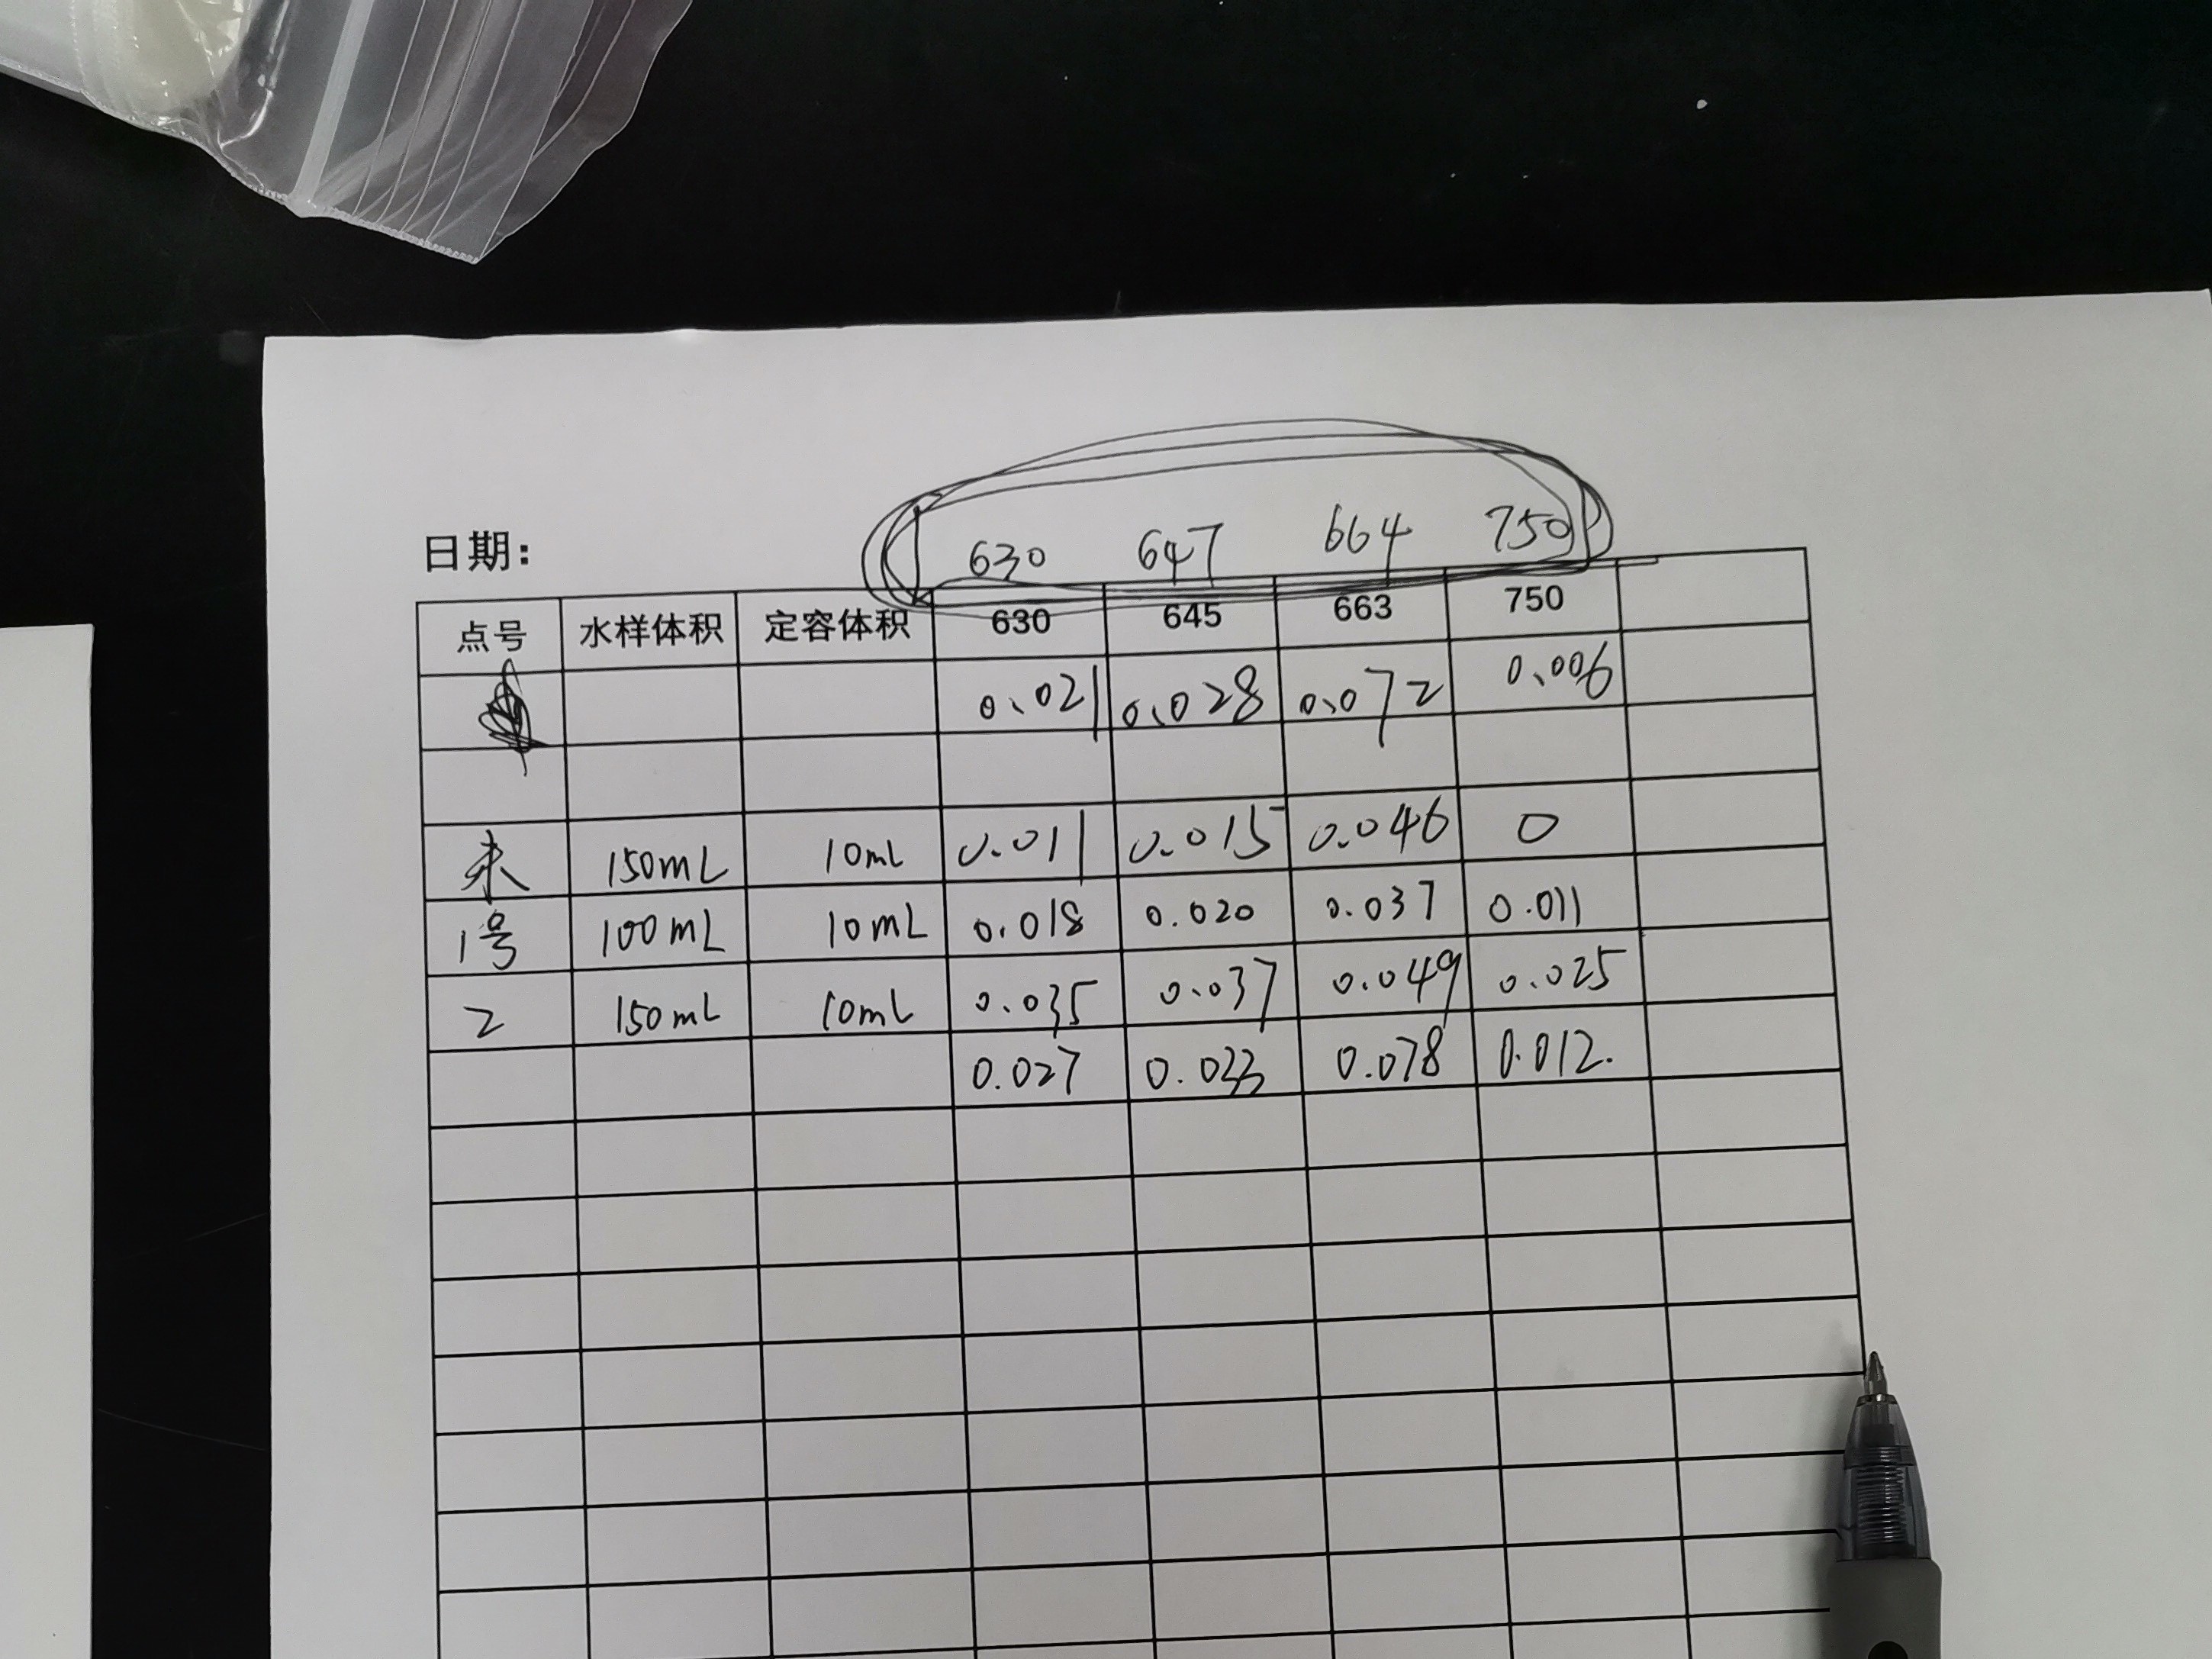 630 647 664 750
日期:
点号 水样体积 定容体积 630 645 663 750
0.021 0.028 0.072 0.006
末 150mL 10mL 0.011 0.015 0.046 0
1号 100mL 10mL 0.018 0.020 0.037 0.011
2 150mL 10mL 0.035 0.037 0.049 0.025
0.027 0.033 0.078 0.012.